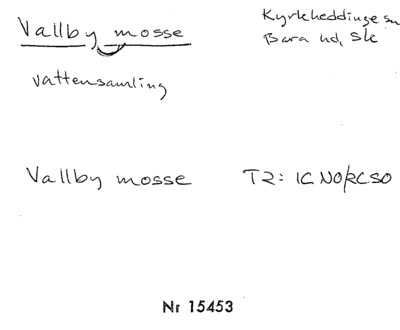 Vallby mosse
Kyrkheddinge sn
Bara hd, Sk
vattensamling
Vallby mosse T2: 1C NO/2C SO
Nr 15453